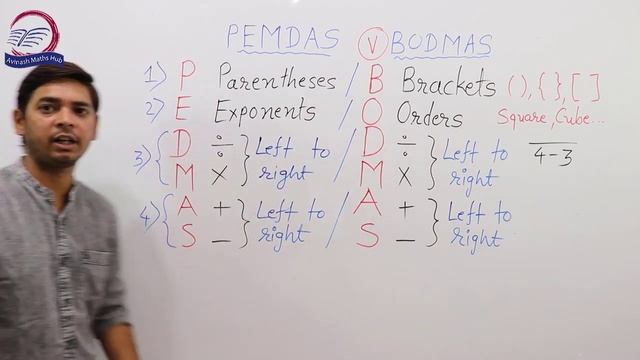 Avinash Maths Hub
PEMDAS V BODMAS
1) P Parentheses / B Brackets ( ), { }, [ ]
2) E Exponents / O Orders Square, Cube...
3) { D ÷ } Left to / D ÷ } Left to 4-3
M × right M × right
4) { A + } Left to / A + } Left to
S - right S - right